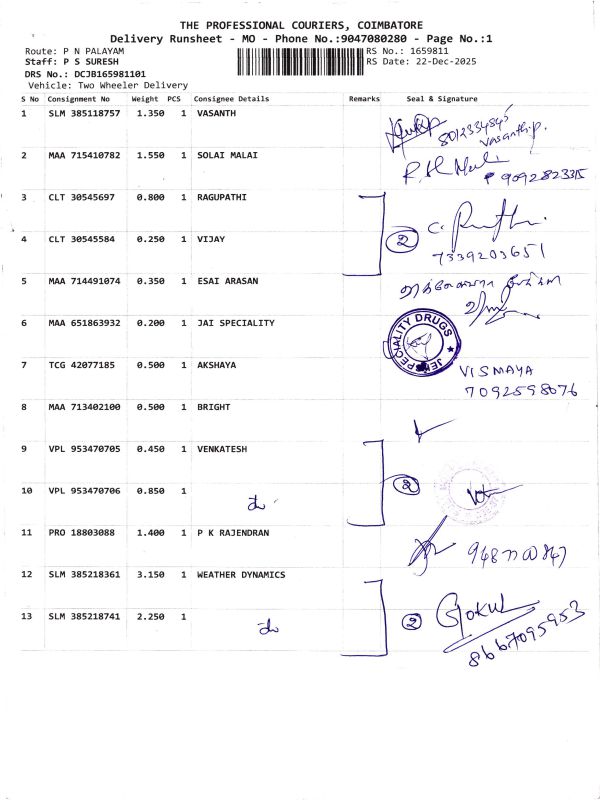 THE PROFESSIONAL COURIERS, COIMBATORE
Delivery Runsheet - MO - Phone No.:9047080280 - Page No.:1
Route: P N PALAYAM RS No.: 1659811
Staff: P S SURESH RS Date: 22-Dec-2025
DRS No.: DCJB165981101
Vehicle: Two Wheeler Delivery
S No Consignment No Weight PCS Consignee Details Remarks Seal & Signature
1 SLM 385118757 1.350 1 VASANTH
8012334845
Vasanth.p.
2 MAA 715410782 1.550 1 SOLAI MALAI
9092823315
3 CLT 30545697 0.800 1 RAGUPATHI
4 CLT 30545584 0.250 1 VIJAY 2
7339203651
5 MAA 714491074 0.350 1 ESAI ARASAN
6 MAA 651863932 0.200 1 JAI SPECIALITY
SPECIALITY DRUGS
7 TCG 42077185 0.500 1 AKSHAYA VISMAYA
7092598076
8 MAA 713402100 0.500 1 BRIGHT
9 VPL 953470705 0.450 1 VENKATESH
10 VPL 953470706 0.850 1 2
11 PRO 18803088 1.400 1 P K RAJENDRAN
12 SLM 385218361 3.150 1 WEATHER DYNAMICS
13 SLM 385218741 2.250 1 2 GOKUL
8667095953